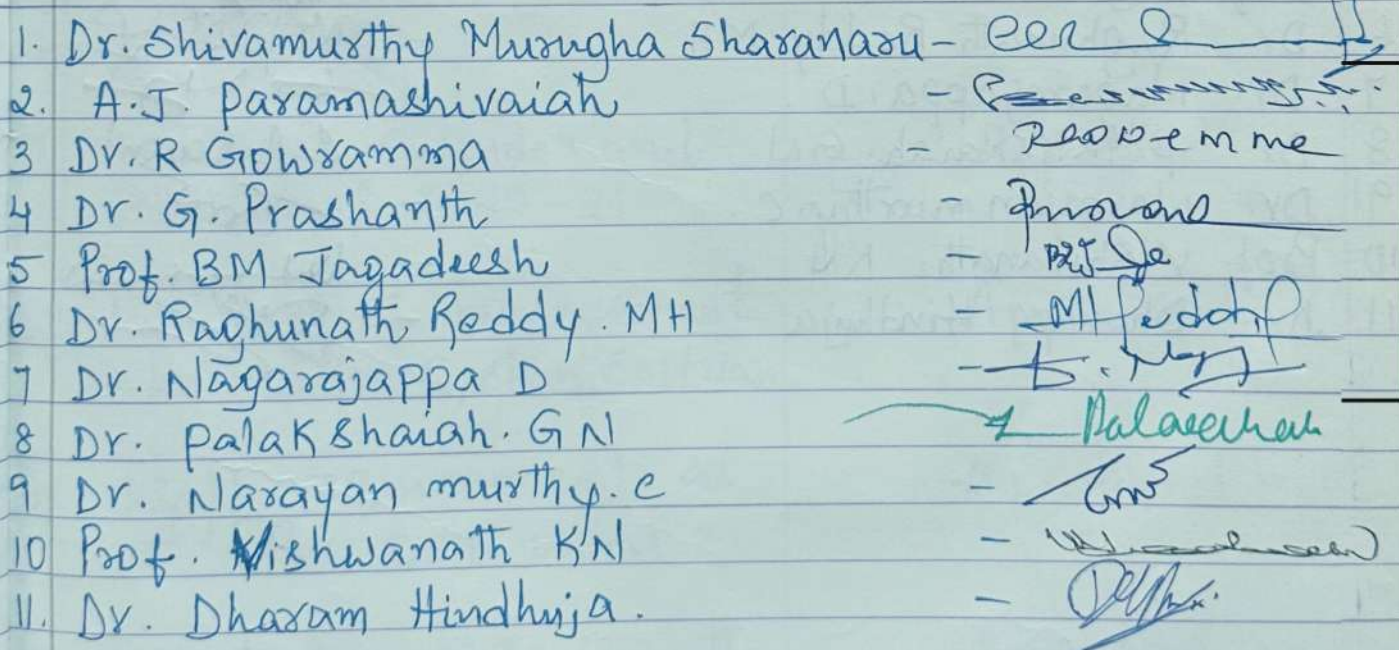 1. Dr. Shivamurthy Murugha Sharanaru -
2. A.J. Paramashivaiah -
3 Dr. R Gowramma -
4 Dr. G. Prashanth -
5 Prof. BM Jagadeesh -
6 Dr. Raghunath Reddy. MH - MH Reddy
7 Dr. Nagarajappa D -
8 Dr. Palakshaiah. GN
9 Dr. Narayan murthy. C -
10 Prof. Vishwanath KN -
11. Dr. Dharam Hindhuja. -